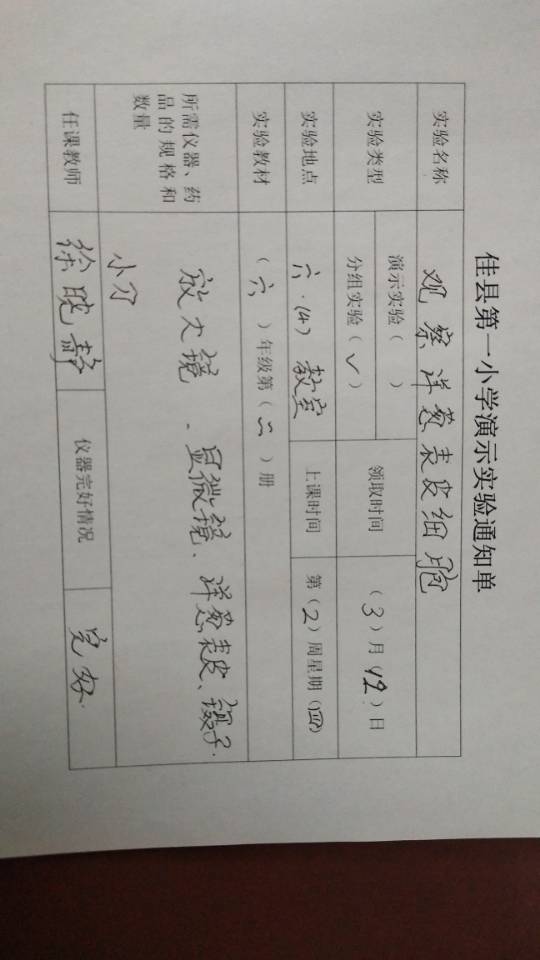 佳县第一小学演示实验通知单
实验名称 观察洋葱表皮细胞
实验类型 演示实验（ ） 分组实验（✓） 领取时间 （3）月（12）日
实验地点 六.(4) 教室 上课时间 第（2）周星期（四）
实验教材 （六）年级第（二）册
所需仪器、药品的规格和数量 放大镜、显微镜、洋葱表皮、镊子.
小刀
任课教师 徐晓静 仪器完好情况 完好.